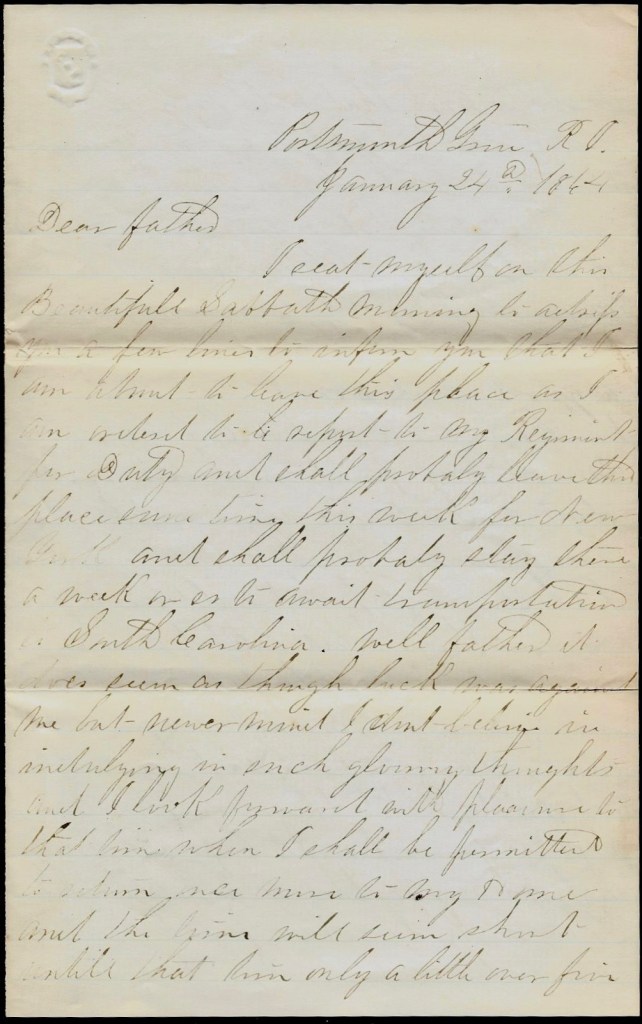 Portsmouth Grove R I.
January 24th 1864
Dear father
I seat myself on this
Beautifull Sabbath morning to adress
you a few lines to inform you that I
am about to leave this place as I
am orderet to report to my Regiment
for Duty and shall probaly leave this
place some time this week for New
York and shall probaly stay there
a week or so to await transportation
to South Carolina. Well father it
does seem as though luck was against
me but never mind I dont belive in
indulging in such gloomy thoughts
and I look forward with pleasure to
that time when I shall be permitted
to return once more to my Home
and the time will seem short
untill that time only a little over five